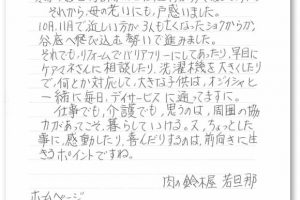 それから、母の老いにも、戸惑いました。
10月、11月で近しい方が3人も亡くなったショクからか、
谷底へ飛び込む勢いで進みました。
それでも、リフォームでバリアフリーにしてあったり、早目に
ケアマネさんに相談したり、洗濯機を大きくしたり
で、何とか対応して、大きな子供は、オジイシャンと
一緒に毎日、デイサービスに通ってますに。
仕事でも、介護でも、思うのは、周囲の協
力があってこそ、暮らしていける。ス、ちょっとした
事に、感動したり、喜んだりするのは、前向きに生
きるポイントですね。
肉の鈴木屋 若旦那
ホームページ